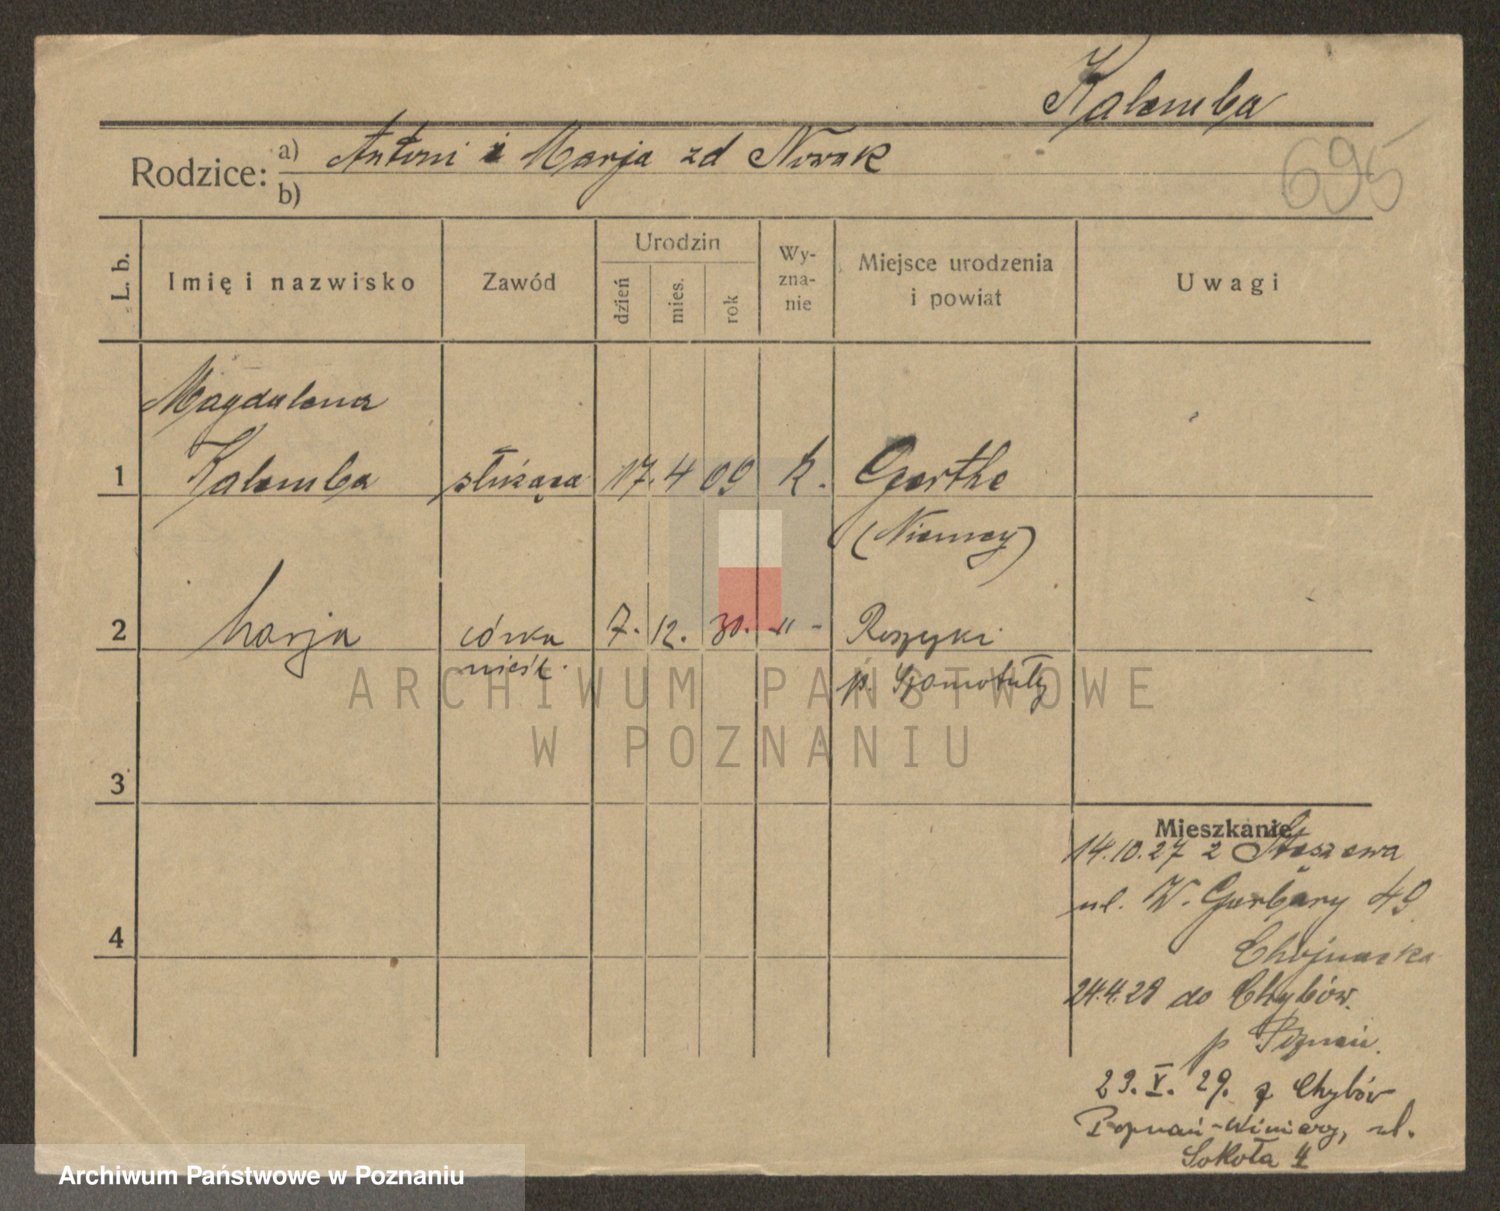 Kalemba
695
Rodzice: a) Antoni i Marja zd Nowak
b)
L. b.
Imię i nazwisko
Zawód
Urodzin
dzień
mies.
rok
Wy-
zna-
nie
Miejsce urodzenia
i powiat
Uwagi
Magdalena
1 Kalemba służąca 17. 4 09 k. Gerthe
(Niemcy)
2 Marja córka 7. 12. 30. -"- Roszyki
nieśl. p. Szamotuły
ARCHIWUM PAŃSTWOWE
W POZNANIU
3
4
Mieszkanie
14.10.27 z Stęszewa
ul. W. Garbary 49
Chojnacka
24.4.28 do Chybów.
p Poznań.
29. V. 29. z Chybów
Poznań-Winiary, ul.
Sokoła 4
Archiwum Państwowe w Poznaniu